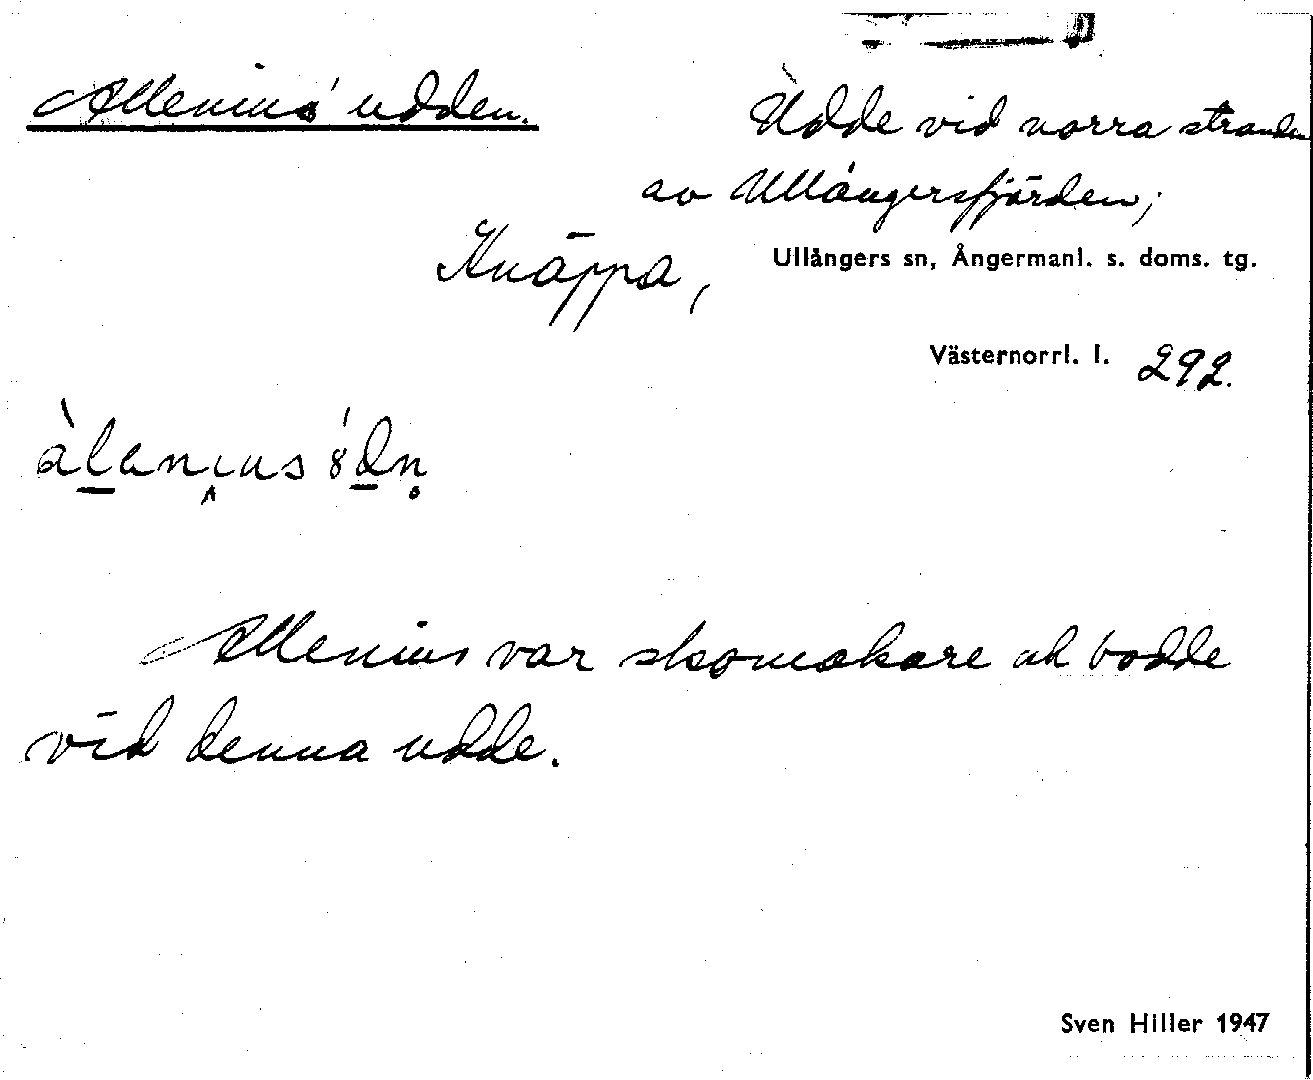 Allenius' udden.
Udde vid norra stranden
av Ullångersfjärden;
Knäppa,
Ullångers sn, Ångermanl. s. doms. tg.
Västernorrl. l. 292.
Allenius var skomakare och bodde
vid denna udde.
Sven Hiller 1947